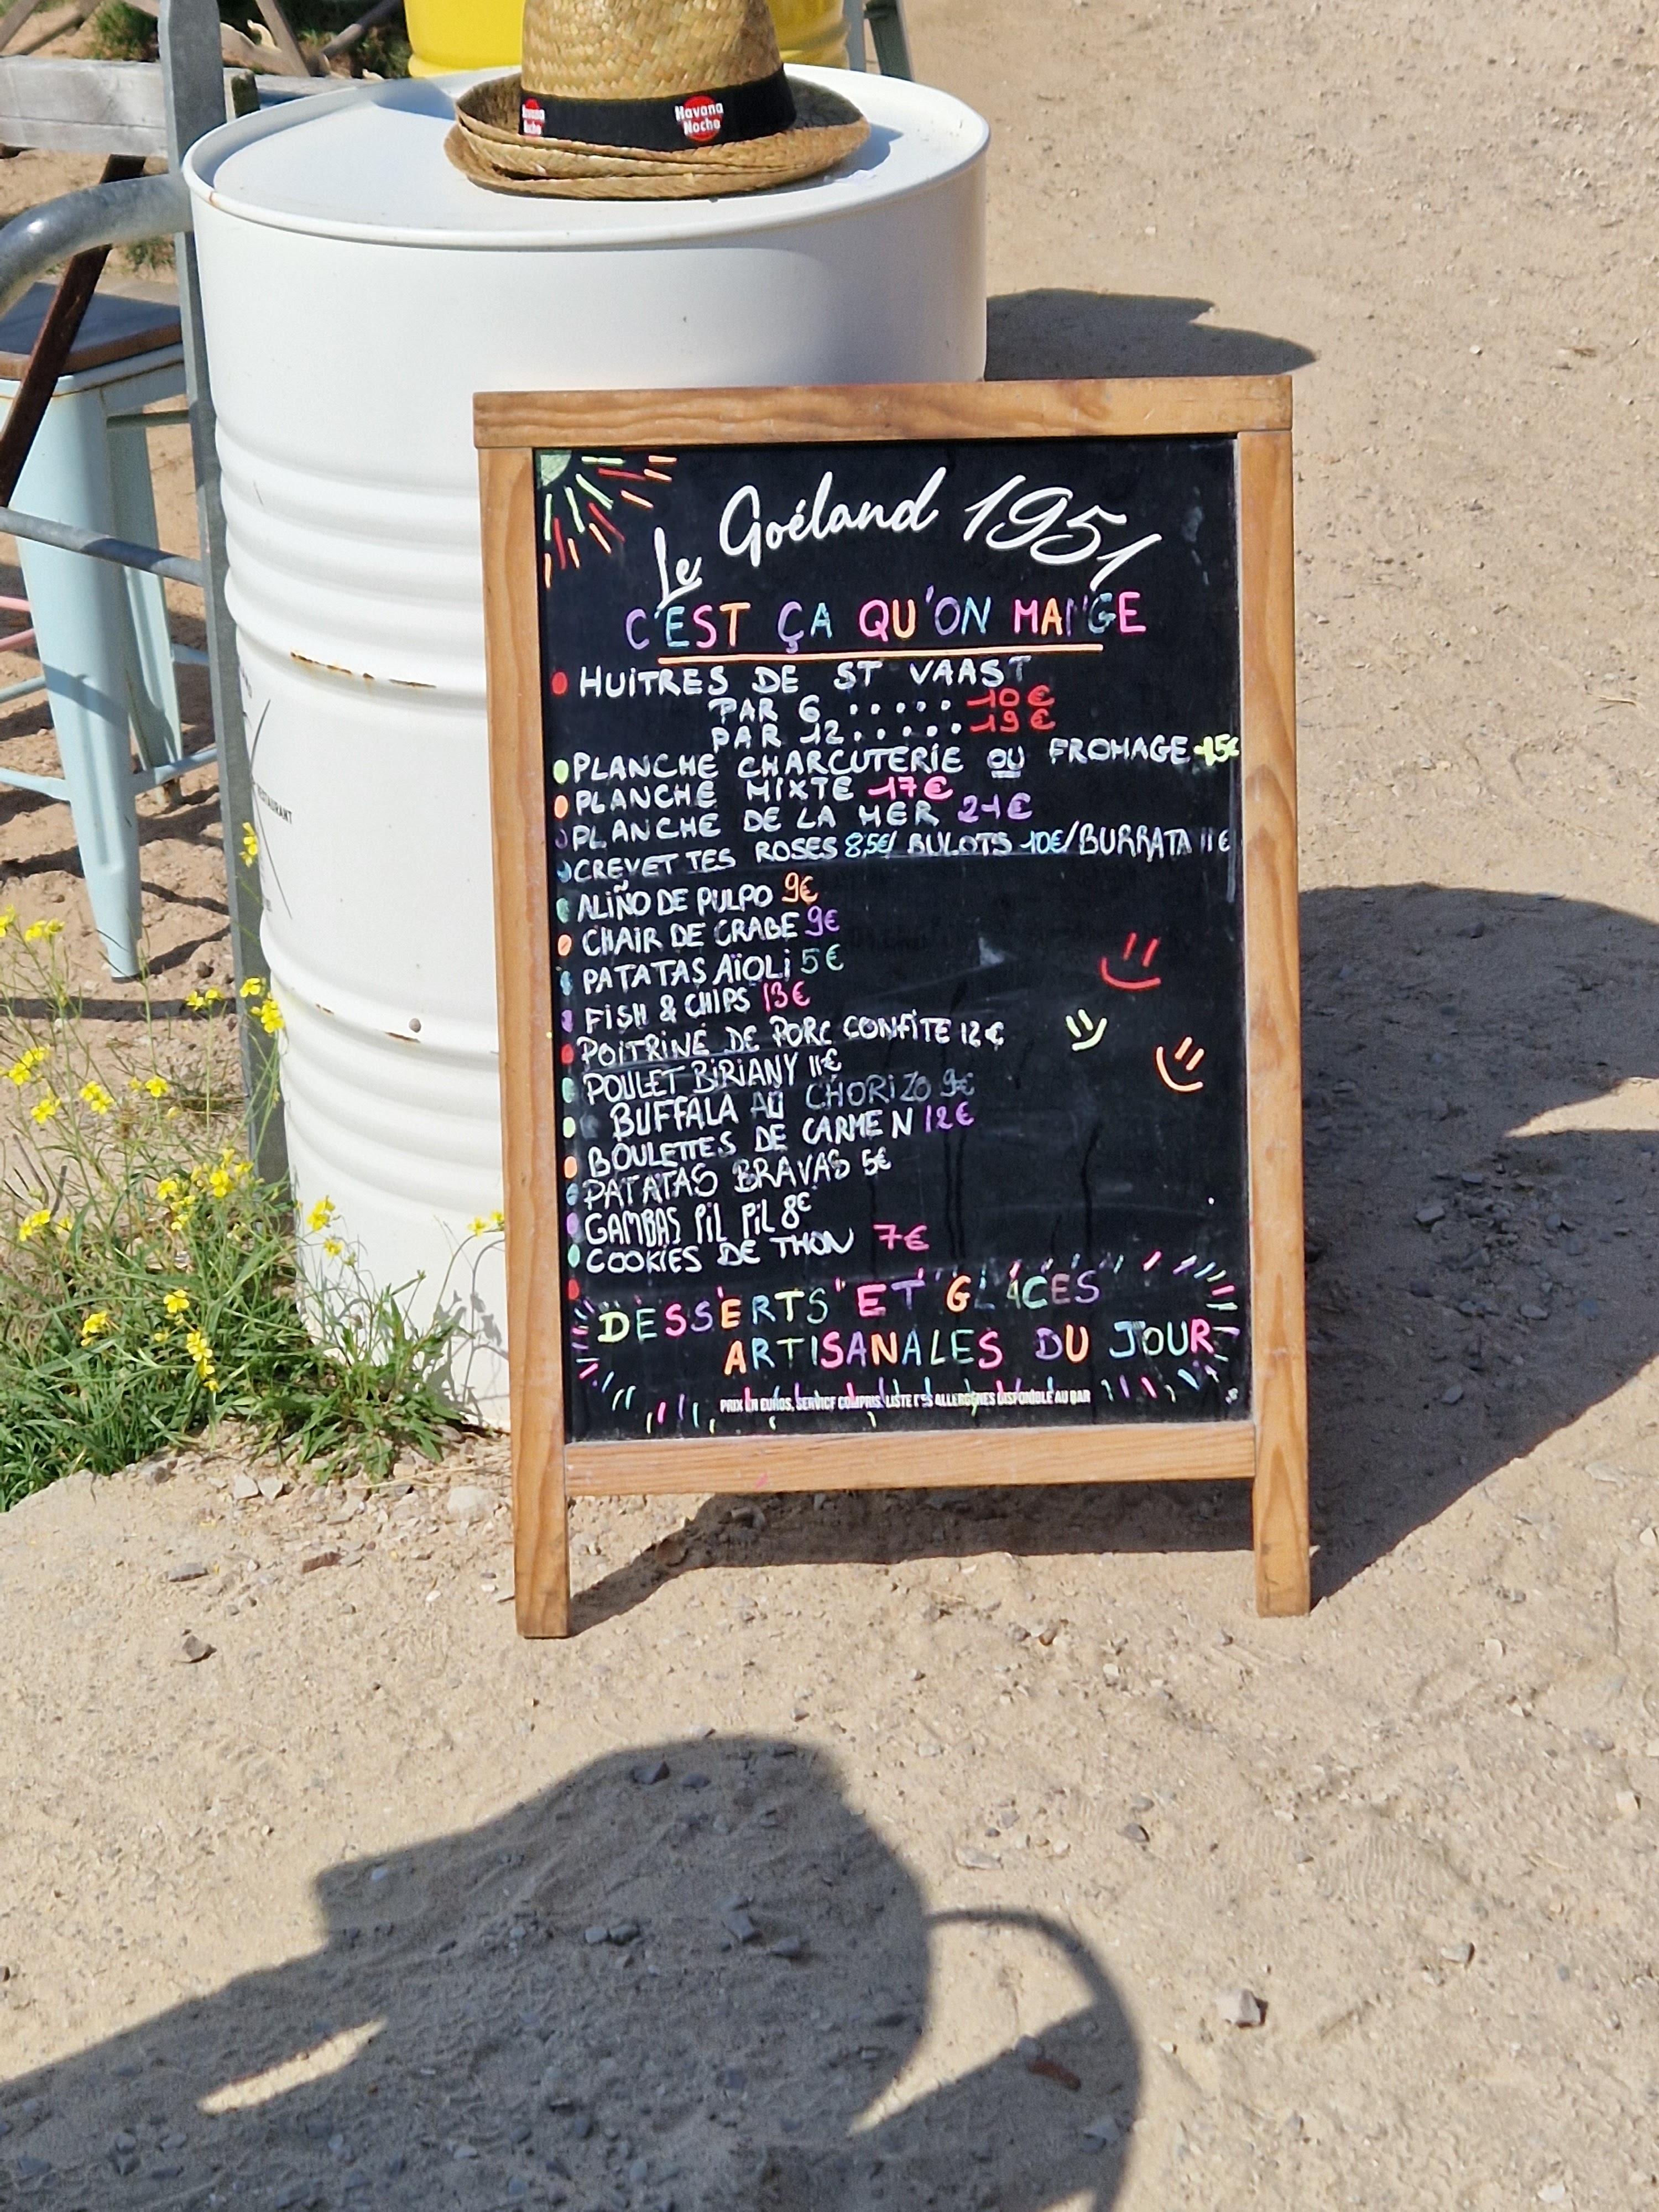 Havana
Nocha
Havana
Nocha
Le Goéland 1951
C'EST ÇA QU'ON MANGE
HUITRES DE ST VAAST
PAR 6 ..... 10€
PAR 12..... 19€
PLANCHE CHARCUTERIE OU FROMAGE 15€
PLANCHE MIXTE 17€
PLANCHE DE LA MER 21€
CREVETTES ROSES 8,5€/ BULOTS 10€/BURRATA 11€
ALIÑO DE PULPO 9€
CHAIR DE CRABE 9€
PATATAS AÏOLI 5€
FISH & CHIPS 13€
POITRINE DE PORC CONFITE 12€
POULET BIRIANY 11€
BUFFALA AU CHORIZO 9€
BOULETTES DE CARMEN 12€
PATATAS BRAVAS 5€
GAMBAS PIL PIL 8€
COOKIES DE THON 7€
DESSERTS ET GLACES
ARTISANALES DU JOUR
PRIX EN EUROS, SERVICE COMPRIS. LISTE DES ALLERGÈNES DISPONIBLE AU BAR